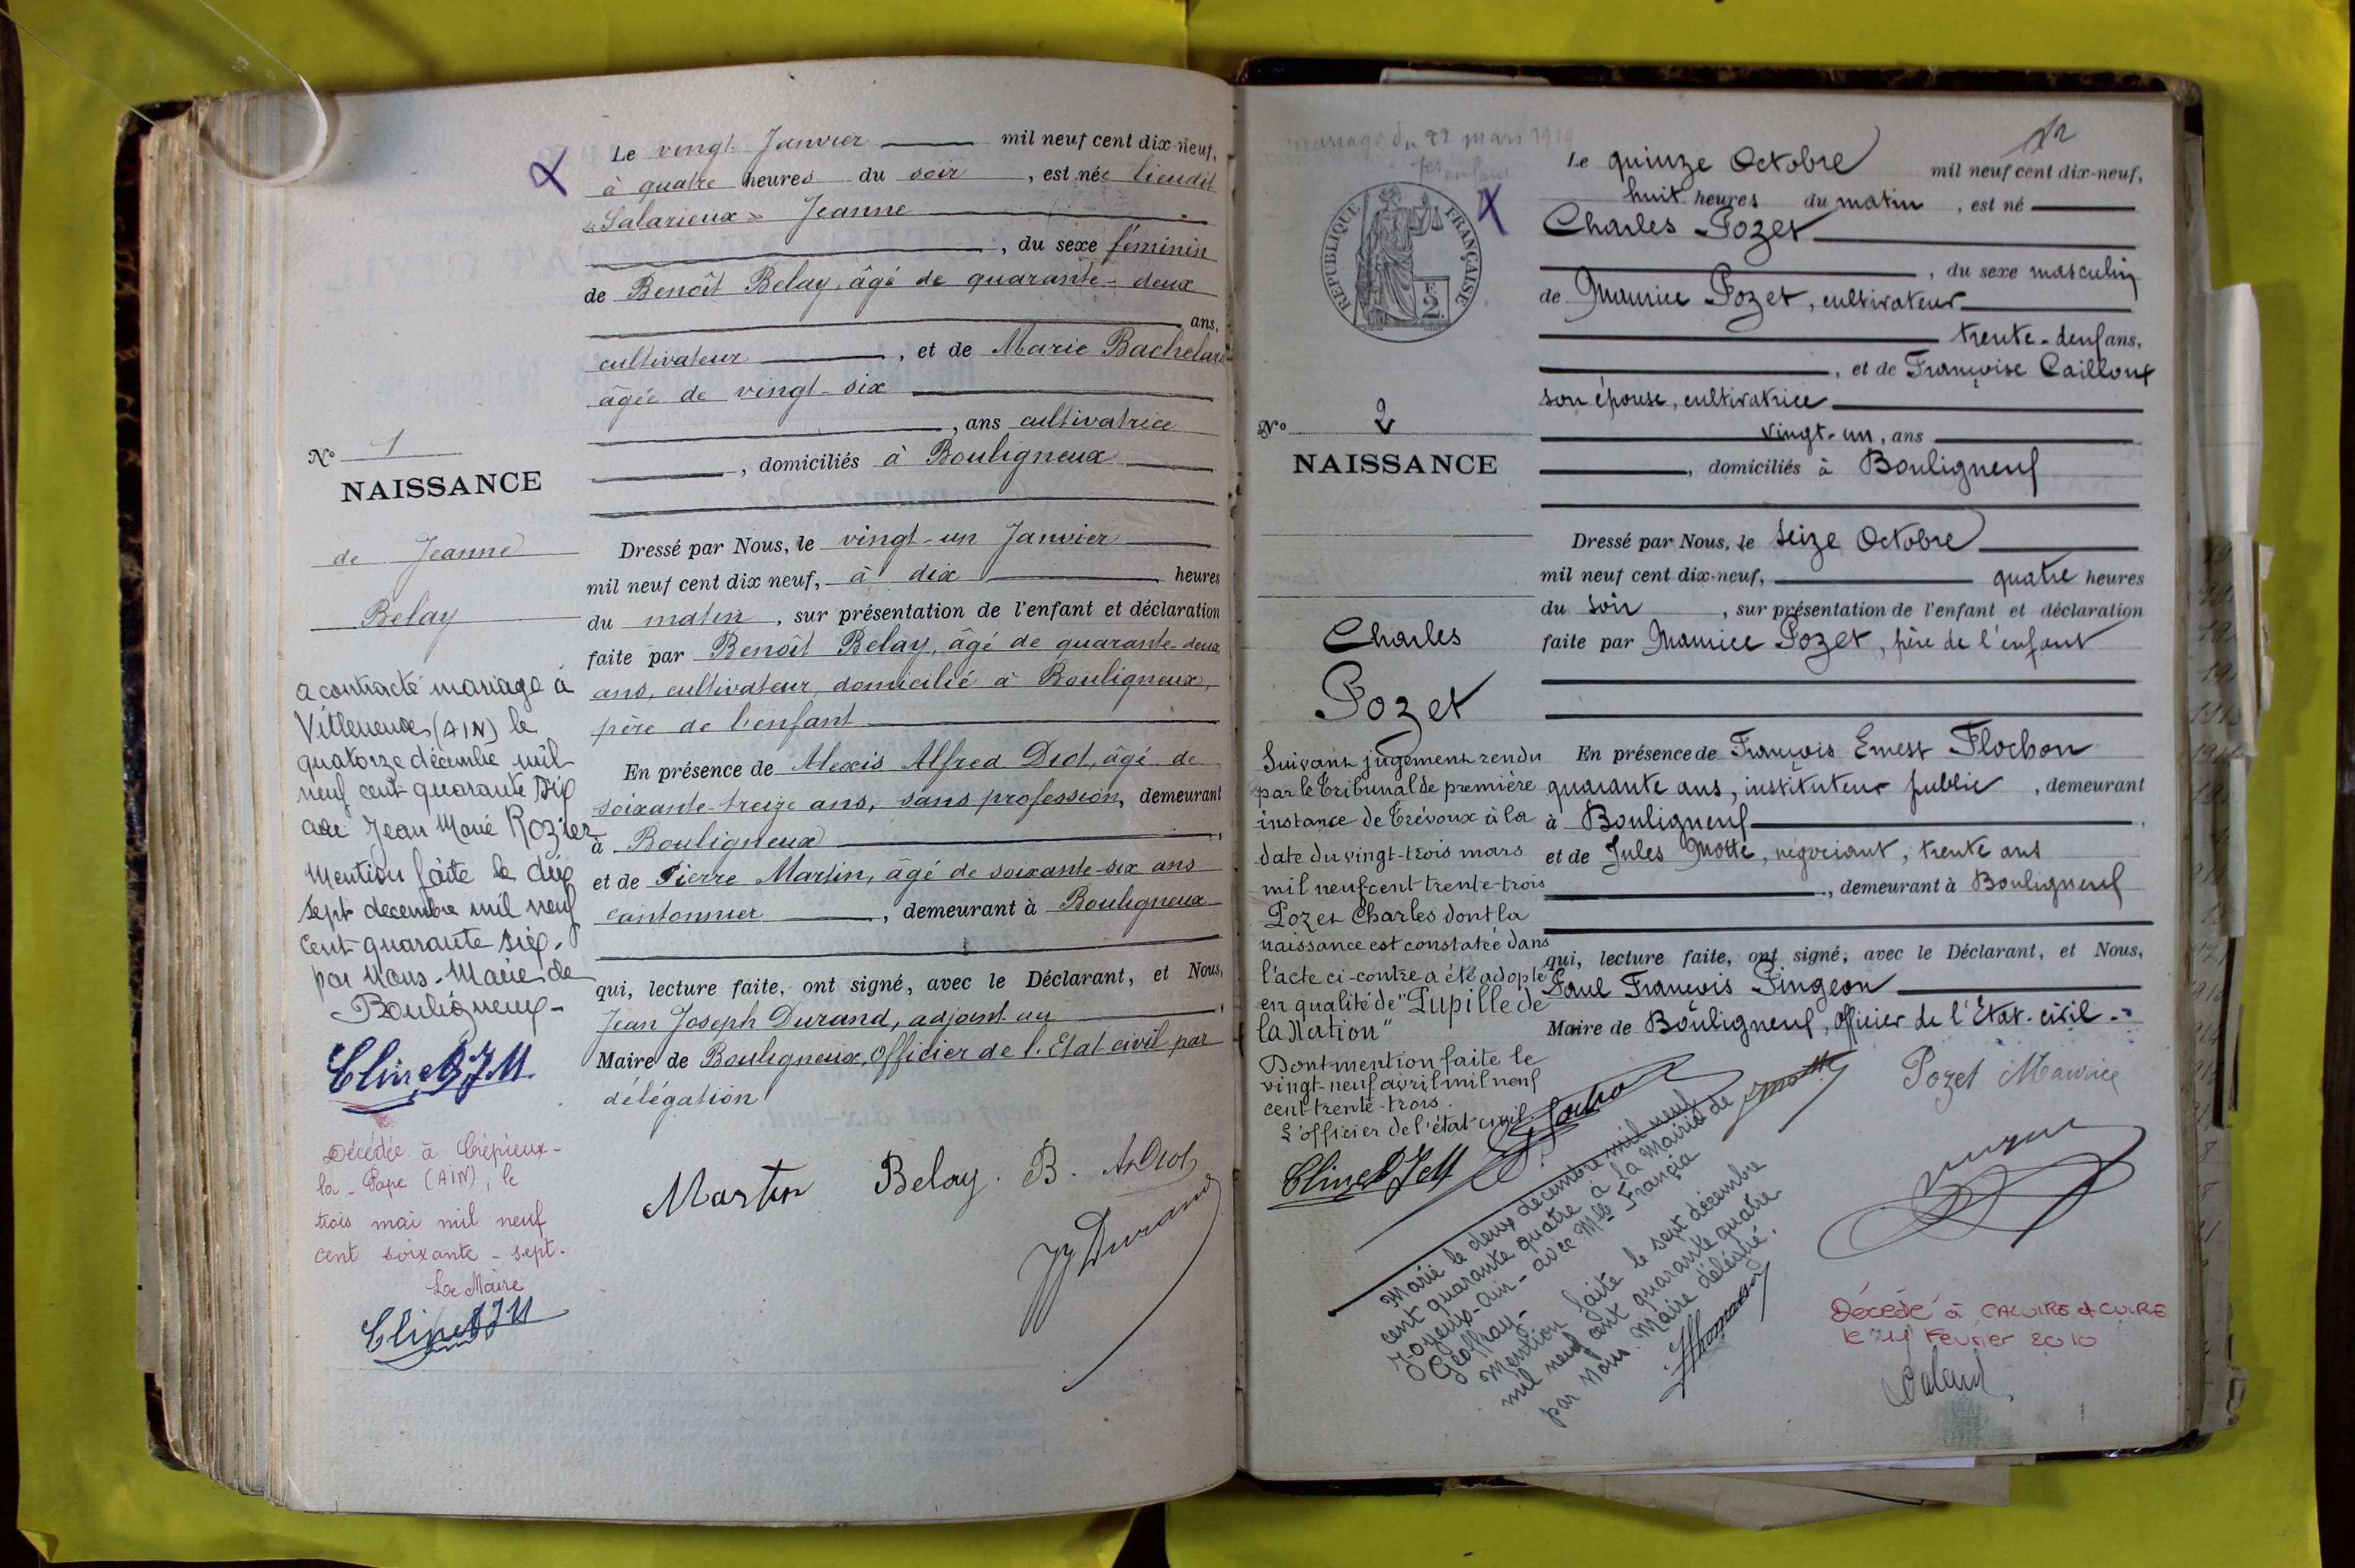 Le vingt Janvier mil neuf cent dix-neuf,
à quatre heures du soir, est née lieudit
"Salarieux" Jeanne
, du sexe féminin
de Benoît Belay, âgé de quarante-deux
ans,
cultivateur, et de Marie Bachelard
âgée de vingt-six
, ans cultivatrice
, domiciliés à Bouligneux
N° 1
NAISSANCE
de Jeanne
Belay
Dressé par Nous, le vingt-un Janvier
mil neuf cent dix neuf, à dix heures
du matin, sur présentation de l'enfant et déclaration
faite par Benoît Belay, âgé de quarante-deux
ans, cultivateur, domicilié à Bouligneux,
père de l'enfant
En présence de Alexis Alfred Diot, âgé de
soixante-treize ans, sans profession, demeurant
à Bouligneux,
et de Pierre Martin, âgé de soixante-six ans
cantonnier, demeurant à Bouligneux
qui, lecture faite, ont signé, avec le Déclarant, et Nous,
Jean Joseph Durand, adjoint au,
Maire de Bouligneux, Officier de l'Etat civil par
délégation
Martin Belay. B. A. Diot
JJ Durand
a contracté mariage à
Villeneuve (AIN) le
quatorze décembre mil
neuf cent quarante six
avec Jean Marie Rozier
Mention faite le dix
sept decembre mil neuf
cent quarante six.
par Nous. Maire de
Bouligneux-
Clinet JM
Décédée à Crépieux-
la-Pape (AIN), le
trois mai mil neuf
cent soixante-sept.
Le Maire
Clinet JM
mariage du 22 mars 1919
1er enfant
12
REPUBLIQUE FRANÇAISE
F.
2
Le quinze Octobre mil neuf cent dix-neuf,
huit heures du matin, est né
Charles Pozet
, du sexe masculin
de Maurice Pozet, cultivateur
trente-deux ans,
, et de Françoise Cailloux
son épouse, cultivatrice
vingt-un, ans
, domiciliés à Bouligneux
N° 2
NAISSANCE
Charles
Pozet
Dressé par Nous, le seize Octobre
mil neuf cent dix-neuf, quatre heures
du soir, sur présentation de l'enfant et déclaration
faite par Maurice Pozet, père de l'enfant
En présence de François Ernest Flochon
quarante ans, instituteur public, demeurant
à Bouligneux,
et de Jules Motte, négociant, trente ans
, demeurant à Bouligneux
qui, lecture faite, ont signé, avec le Déclarant, et Nous,
Paul François Pingeon
Maire de Bouligneux, officier de l'Etat-civil.
Suivant jugement rendu
par le Tribunal de première
instance de Trévoux à la
date du vingt-trois mars
mil neuf cent trente-trois
Pozet Charles dont la
naissance est constatée dans
l'acte ci-contre a été adopté
en qualité de "Pupille de
la Nation"
Dont mention faite le
vingt-neuf avril mil neuf
cent trente-trois.
L'officier de l'état-civil
Clinet JM
Motte
Pozet Maurice
Marié le deux décembre mil neuf
cent quarante quatre à la Mairie de
Joyeux-Ain- avec Mlle Francia
Geoffray-
Mention faite le sept décembre
mil neuf cent quarante quatre
par Nous. Maire délégué.
Décédé à CALUIRE et CUIRE
le 11 Février 2010